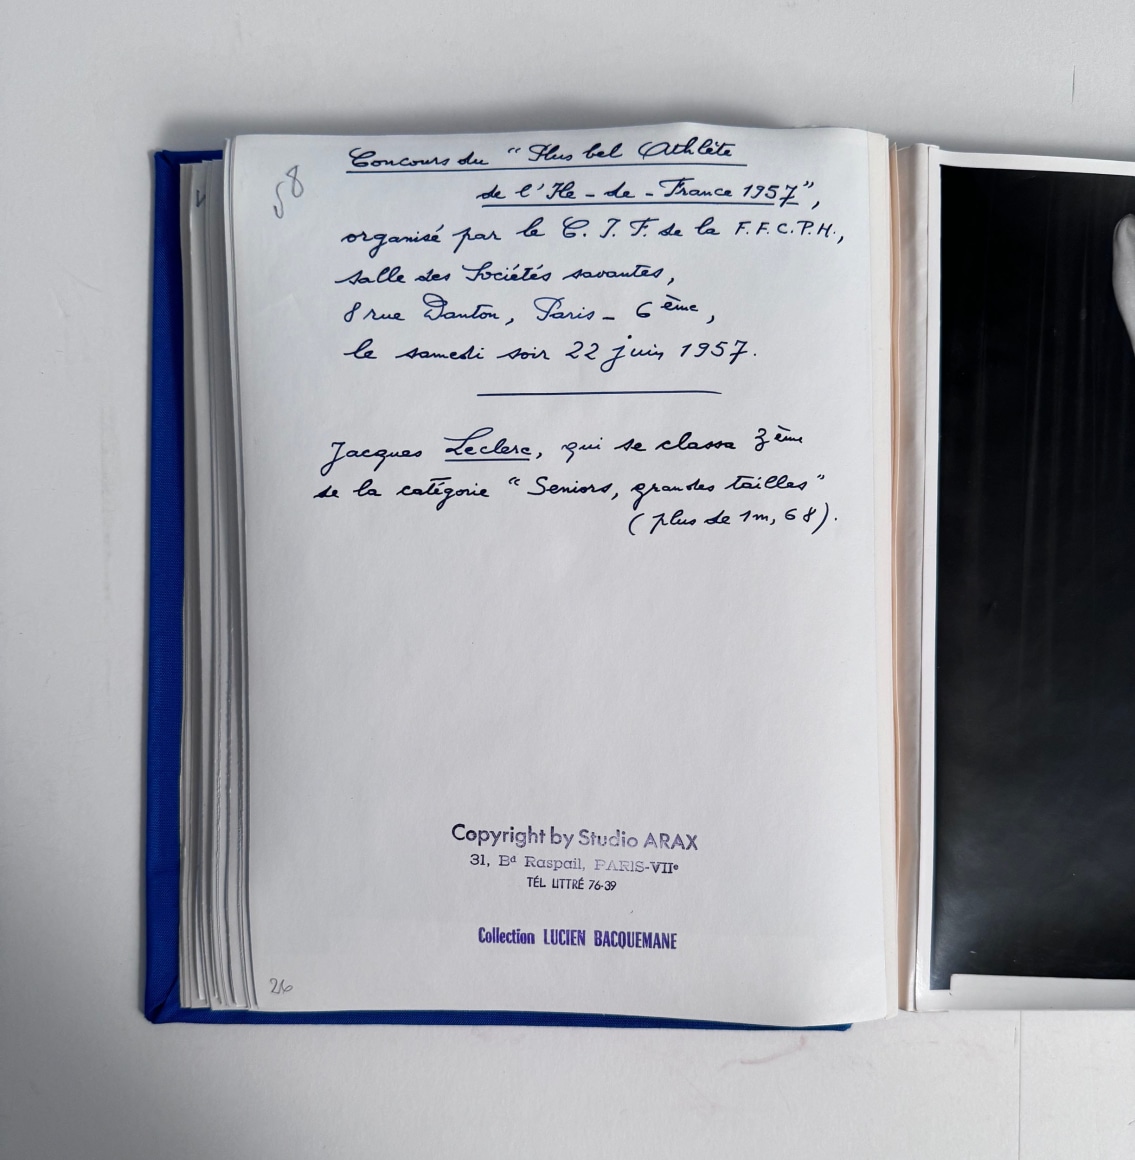 58
Concours du “Plus bel Athlète
de l'Ile-de-France 1957”,
organisé par le C.I.F. de la F.F.C.P.H.,
salle des Sociétés savantes,
8 rue Danton, Paris-6ème,
le samedi soir 22 juin 1957.
Jacques Leclerc, qui se classa 3ème
de la catégorie “Seniors, grandes tailles”
(plus de 1m,68).
Copyright by Studio ARAX
31, Bd Raspail, PARIS-VIIe
TÉL. LITTRÉ 76-39
Collection LUCIEN BACQUEMANE
26